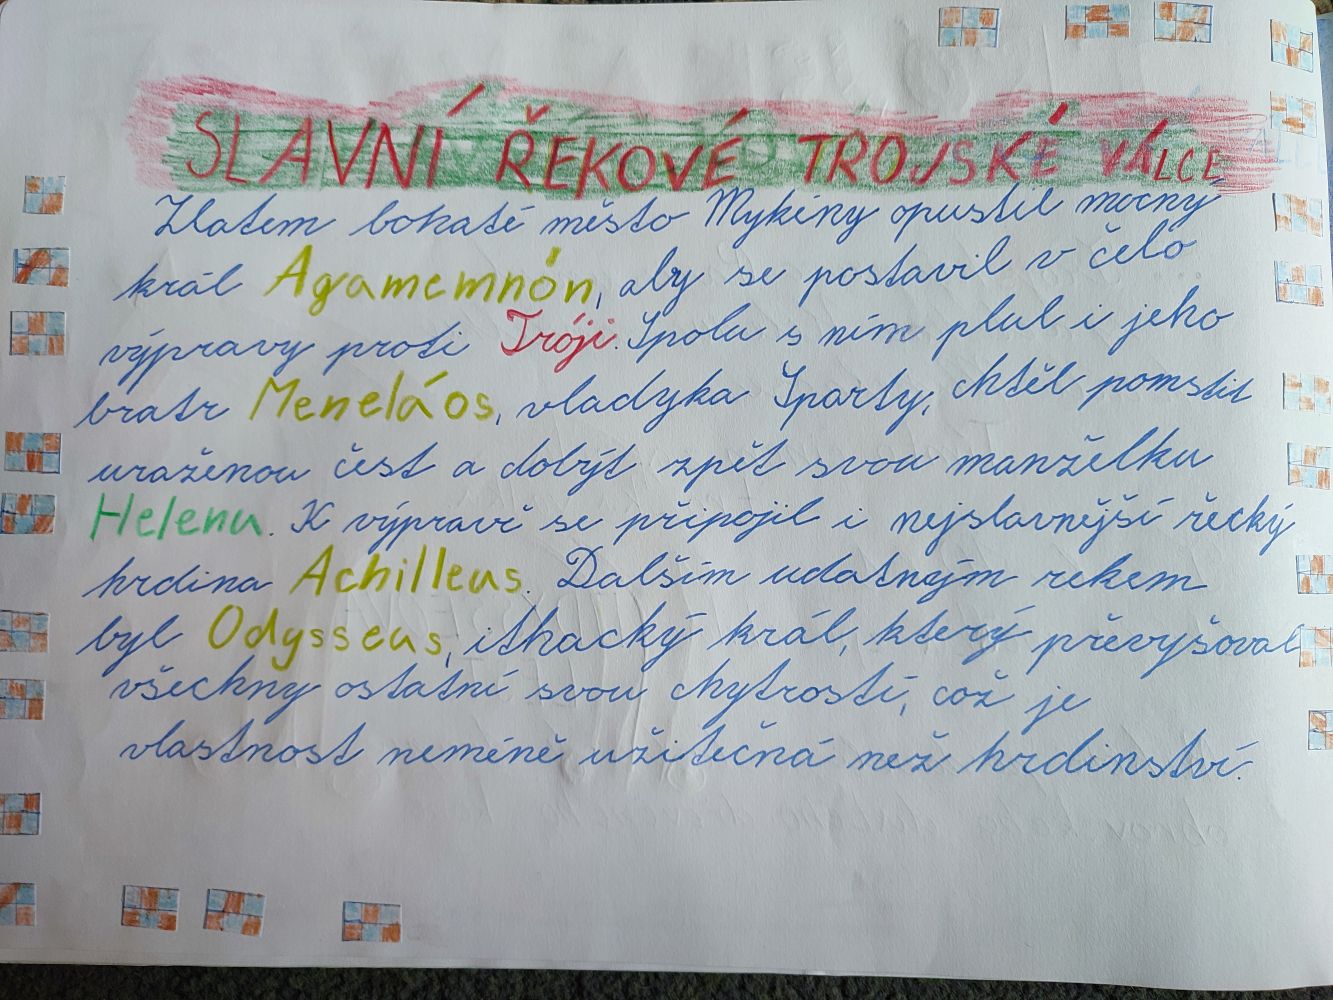 SLAVNÍ ŘEKOVÉ TROJSKÉ VÁLCE
Zlatem bohaté město Mykény opustil mocný
král Agamemnón, aby se postavil v čelo
výpravy proti Tróji. Spolu s ním plul i jeho
bratr Meneláos, vladyka Sparty, chtěl pomstít
uraženou čest a dobýt zpět svou manželku
Helenu. K výpravě se připojil i nejslavnější řecký
hrdina Achilleus. Dalším udatným rekem
byl Odysseus, ithacký král, který převyšoval
všechny ostatní svou chytrostí, což je
vlastnost neméně užitečná než hrdinství.